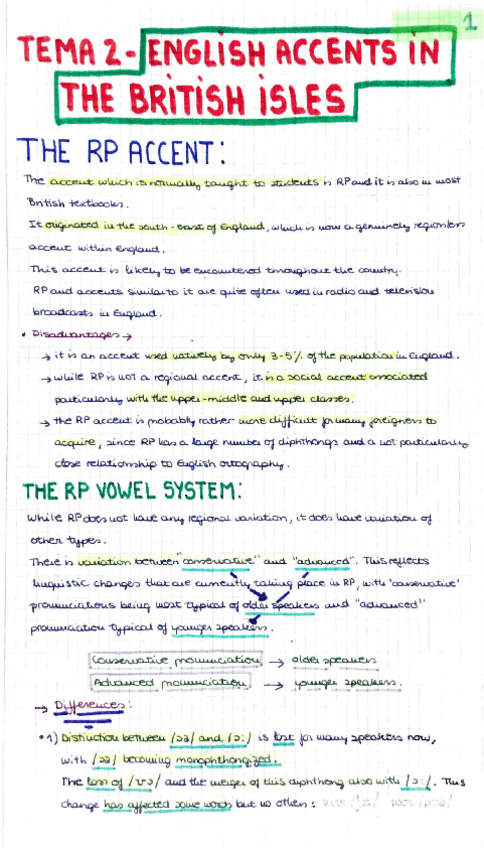 1
TEMA 2 - ENGLISH ACCENTS IN
THE BRITISH ISLES
THE RP ACCENT:
The accent which is normally taught to students is RP and it is also in most
British textbooks.
It originated in the south-east of England, which is now a genuinely regionless
accent within England.
This accent is likely to be encountered throughout the country.
RP and accents similar to it are quite often used in radio and television
broadcasts in England.
• Disadvantages →
→ it is an accent used natively by only 3-5% of the population in England.
→ while RP is not a regional accent, it is a social accent associated
particularly with the upper-middle and upper classes.
→ the RP accent is probably rather more difficult for many foreigners to
acquire, since RP has a large number of diphthongs and a not particularly
close relationship to English ortography.
THE RP VOWEL SYSTEM:
While RP does not have any regional variation, it does have variation of
other types.
There is variation between "conservative" and "advanced". This reflects
linguistic changes that are currently taking place in RP, with "conservative"
pronunciations being most typical of older speakers and "advanced"
pronunciation typical of younger speakers.
Conservative pronunciation → older speakers
Advanced pronunciation → younger speakers.
→ Differences:
• 1) Distinction between /ɔə/ and /ɔ:/ is lost for many speakers now,
with /ɔə/ becoming monophthongized.
The loss of /ʊə/ and the merger of this diphthong also with /ɔ:/. This
change has affected some words but no others: